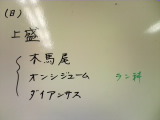 (日)
上盛
木馬尾
オンシジューム ラン科
ダイアンサス